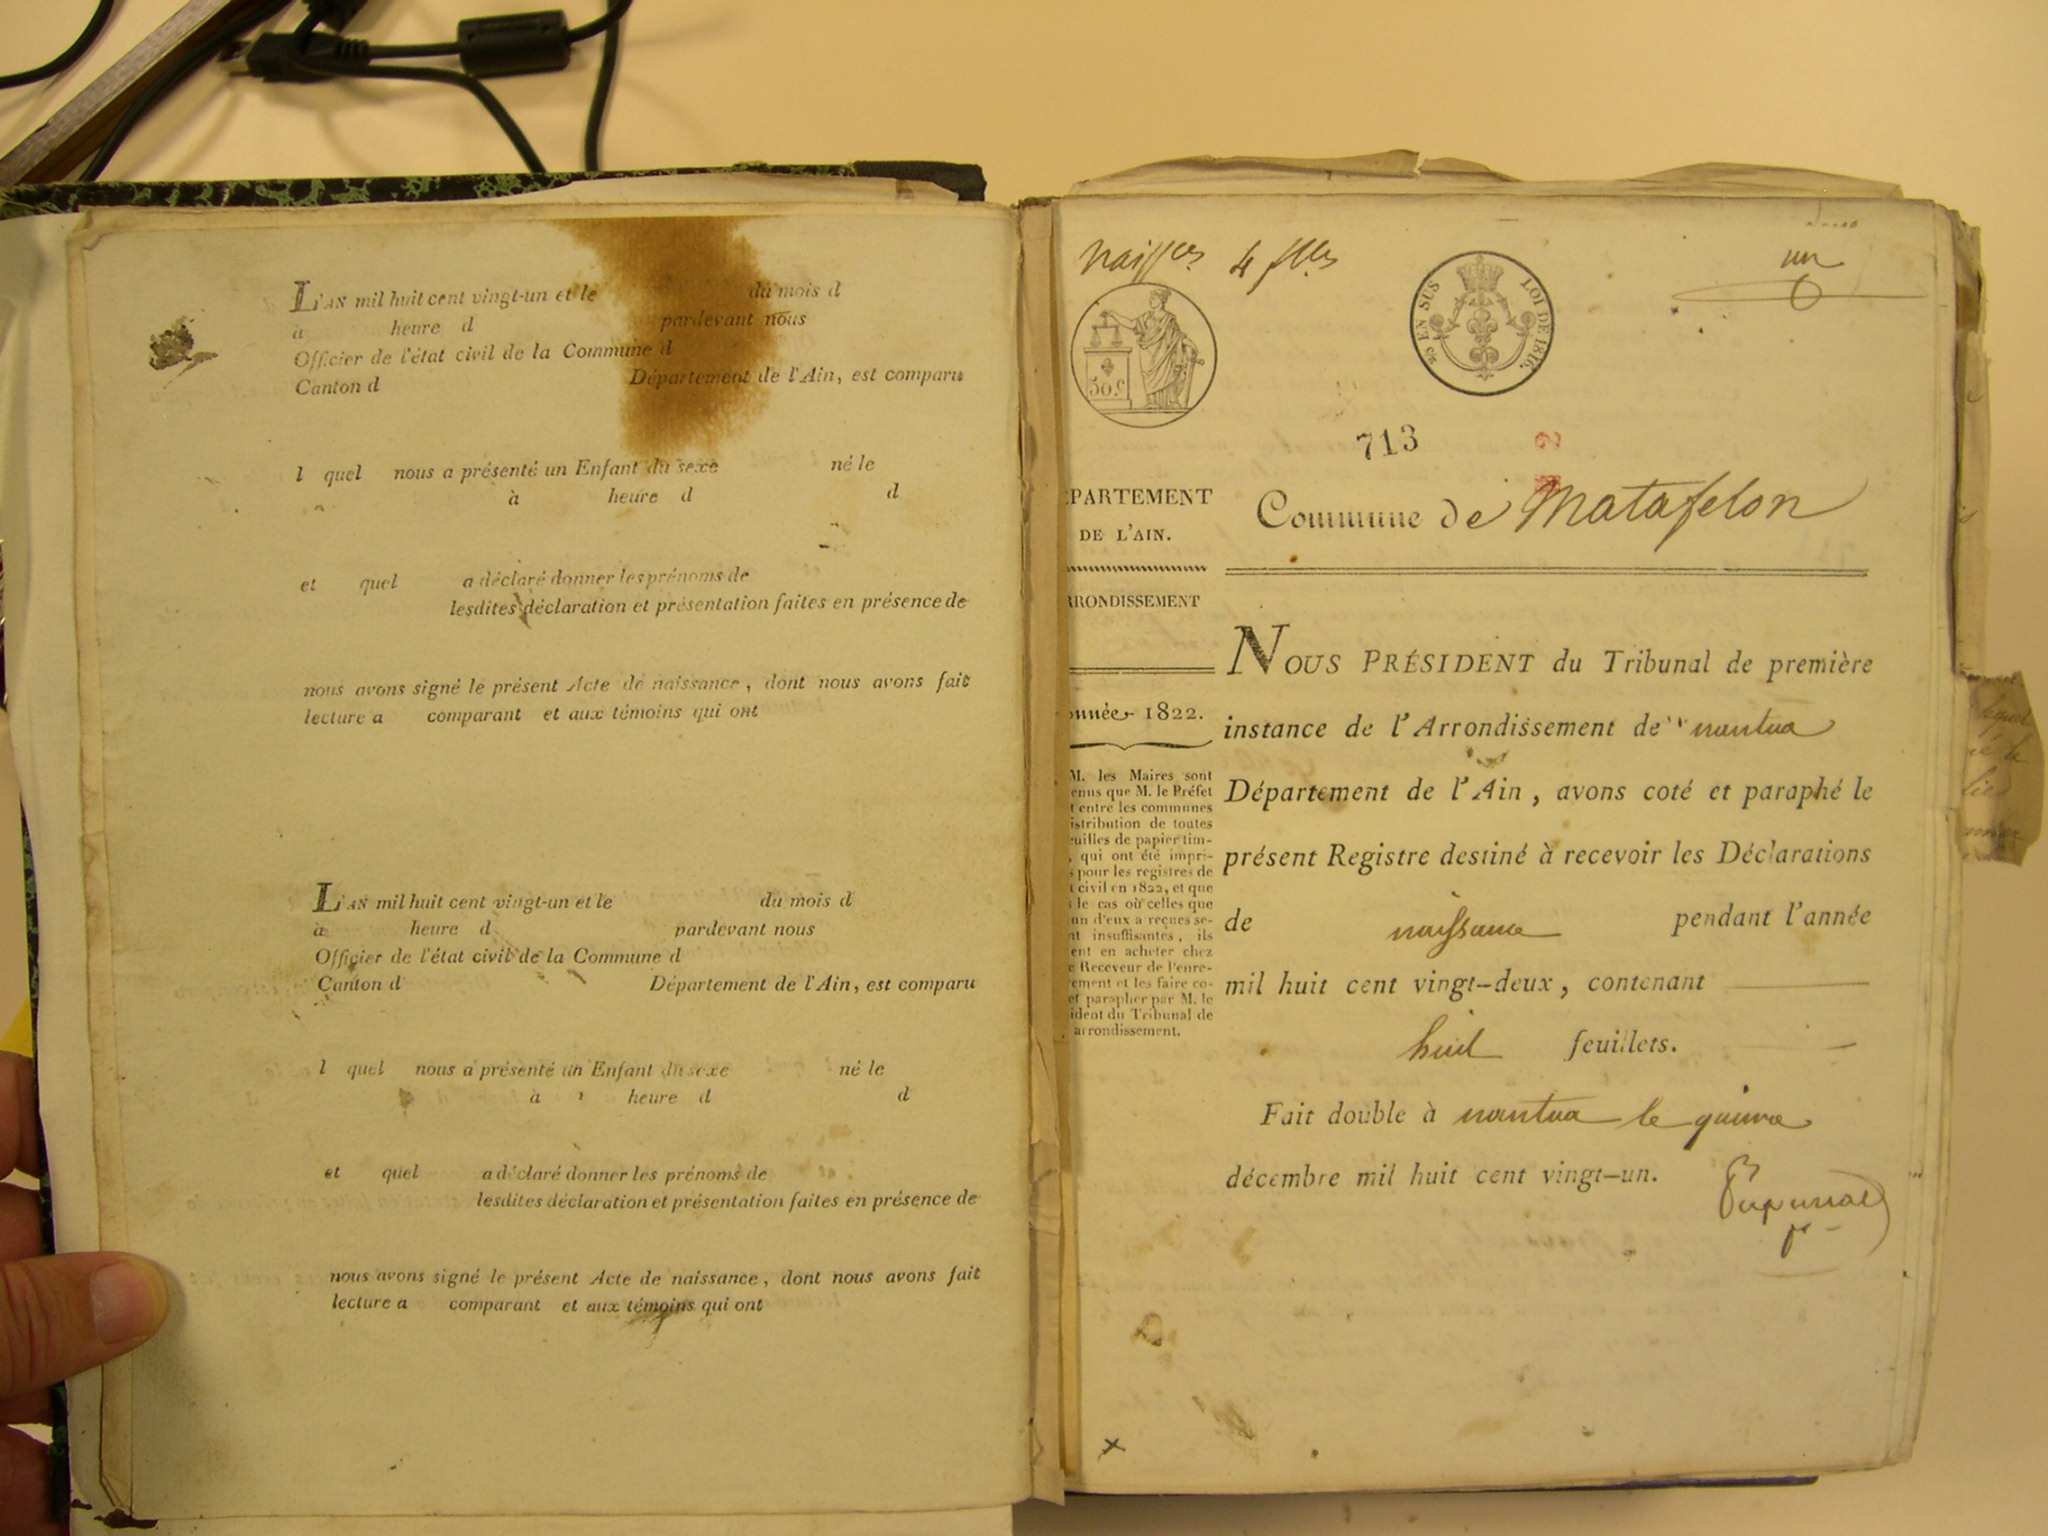 L'AN mil huit cent vingt-un et le du mois d
a heure d pardevant nous
Officier de l'état civil de la Commune d
Canton d Département de l'Ain, est comparu
l quel nous a présenté un Enfant du sexe né le
à heure d d
et quel a déclaré donner les prénoms de
lesdites déclaration et présentation faites en présence de
nous avons signé le présent Acte de naissance, dont nous avons fait
lecture a comparant et aux témoins qui ont
L'AN mil huit cent vingt-un et le du mois d
a heure d pardevant nous
Officier de l'état civil de la Commune d
Canton d Département de l'Ain, est comparu
l quel nous a présenté un Enfant du sexe né le
à heure d d
et quel a déclaré donner les prénoms de
lesdites déclaration et présentation faites en présence de
nous avons signé le présent Acte de naissance, dont nous avons fait
lecture a comparant et aux témoins qui ont
un
EN SUS LOI DE 1816.
50 c
713
PARTEMENT
DE L'AIN.
RRONDISSEMENT
nnée 1822.
M. les Maires sont
enus que M. le Préfet
t entre les communes
istribution de toutes
euilles de papier tim-
, qui ont été impri-
s pour les registres de
t civil en 1822, et que
le cas où celles que
un d'eux a reçues se-
nt insuffisantes, ils
ent en acheter chez
e Receveur de l'enre-
ement et les faire co-
et parapher par M. le
ident du Tribunal de
arrondissement.
Commune de Matafelon
NOUS PRÉSIDENT du Tribunal de première
instance de l'Arrondissement de nantua
Département de l'Ain, avons coté et paraphé le
présent Registre destiné à recevoir les Déclarations
de naissance pendant l'année
mil huit cent vingt-deux, contenant
huit feuillets.
Fait double à nantua le quinze
décembre mil huit cent vingt-un.